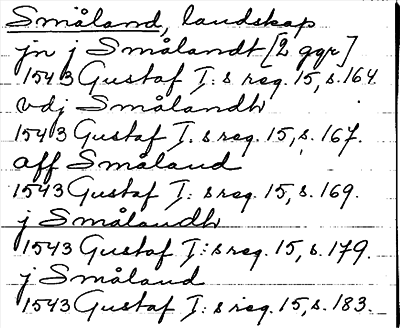 Småland, landskap
jn j Smålandt [2 ggr]
1543 Gustaf I:s reg. 15, s. 164.
vdj Smålandh
1543 Gustaf I:s reg. 15, s. 167.
aff Småland
1543 Gustaf I:s reg. 15, s. 169.
j Smålandh
1543 Gustaf I:s reg. 15, s. 179.
j Småland
1543 Gustaf I:s reg. 15, s. 183.